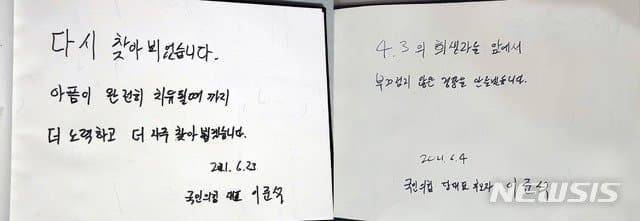 다시 찾아 뵈었습니다.
아픔이 완전히 치유될때 까지
더 노력하고 더 자주 찾아 뵙겠습니다.
2021.6.23
국민의힘 대표 이준석
4.3의 희생자들 앞에서
부끄럽지 않은 정당을 만들겠습니다.
2021.6.4
국민의힘 당대표 후보자 이준석
NEWSIS